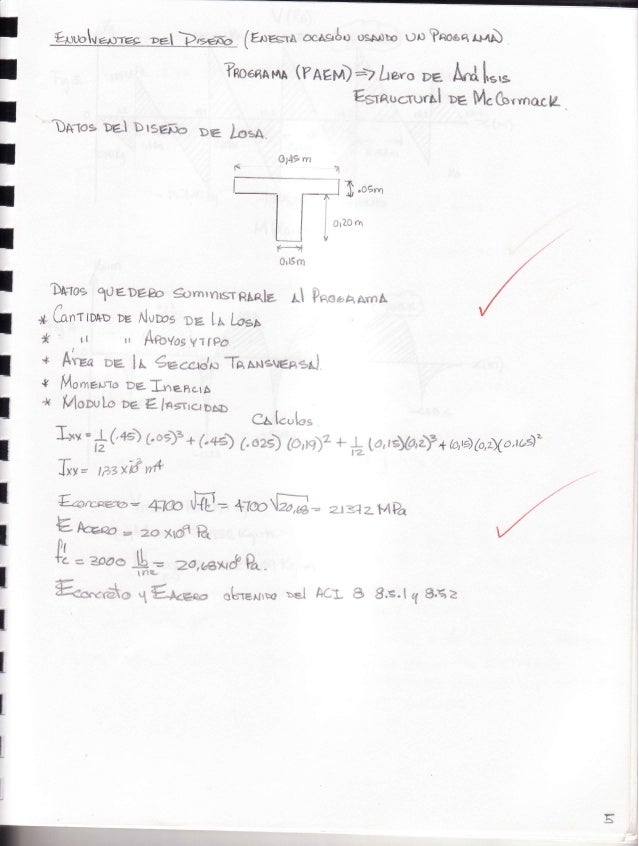 ENVOLVENTES DEL DISEÑO (EN ESTA OCASIÓN USANDO UN PROGRAMA)
PROGRAMA (PAEM) => LIBRO DE Análisis
ESTRUCTURAL DE McCormack
DATOS DEL DISEÑO DE LOSA.
0,45 m
.05m
0,20 m
0,15m
DATOS QUE DEBO SUMINISTRARLE AL PROGRAMA
* CANTIDAD DE NUDOS DE LA LOSA
* " " APOYOS Y TIPO
* Área DE LA SECCIÓN TRANSVERSAL
* MOMENTO DE INERCIA
* MODULO DE ELASTICIDAD
Cálculos
Ixx = 1/12 (.45) (.05)³ + (.45) (.025) (0,19)² + 1/12 (0,15)(0,2)³ + (0,15)(0,2)(0.165)²
Ixx = 1,33 x 10⁻³ m⁴
Econcreto = 4700 √fc' = 4700 √20,68 = 21372 MPa
E ACERO = 20 x10⁹ Pa
f'c = 3000 lb/in2 = 20,68x10⁶ Pa.
Econcreto y EACERO OBTENIDO DEL ACI 8 8.5.1 y 8.5.2
5